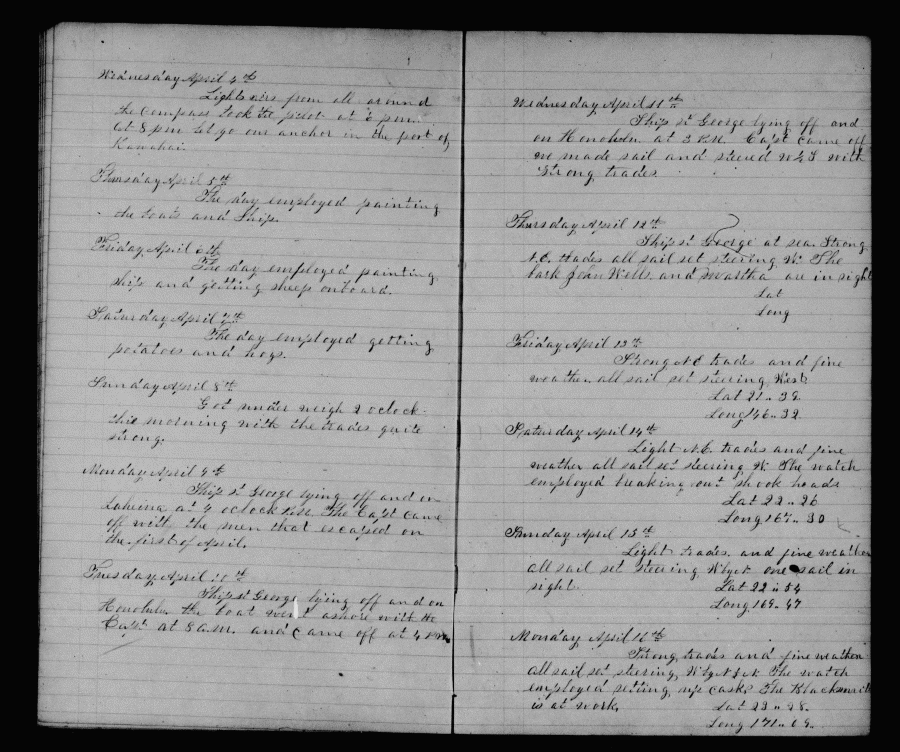 Wednesday April 4th
Light airs from all around
the Compass took the pilot at 6 P.M.
at 8 pm let go our anchor in the port of
Kawahai.
Thursday April 5th
The day employed painting
the boats and Ship.
Friday April 6th
The day employed painting
ship and getting sheep onboard.
Saturday April 7th
The day employed getting
potatoes and hogs.
Sunday April 8th
Got under weigh 2 oclock
this morning with the trades quite
strong.
Monday April 9th
Ship St George lying off and on
Laheina at 4 oclock P.M. The Capt came
off with the men that escaped on
the first of April.
Tuesday April 10th
Ship St George lying off and on
Honolulu the boat went ashore with the
Capt at 8 A.M. and came off at 4 P.M.
Wednesday April 11th
Ship St George lying off and
on Honolulu at 3 P.M. Capt came off
we made sail and steered W by S with
Strong trades
Thursday April 12th
Ship St George at sea. Strong
N.E. trades all sail set steering W. The
bark John Wells and Martha are in sight
Lat
Long
Friday April 13th
Strong N.E trades and fine
weather all sail set steering West
Lat 21 .. 39
Long 146 .. 32
Saturday April 14th
Light N.E. trades and fine
weather all sail set steering W. The watch
employed breaking out shook heads
Lat 22 .. 26
Long 167 .. 30
Sunday April 15th
Light trades and fine weather
all sail set steering W by N one sail in
sight. Lat 22 .. 54
Long 169 .. 47
Monday April 16th
Strong trades and fine weather
all sail set steering The watch
employed setting up casks The Blacksmith
is at work, Lat 23 .. 28.
Long 171 .. 09.